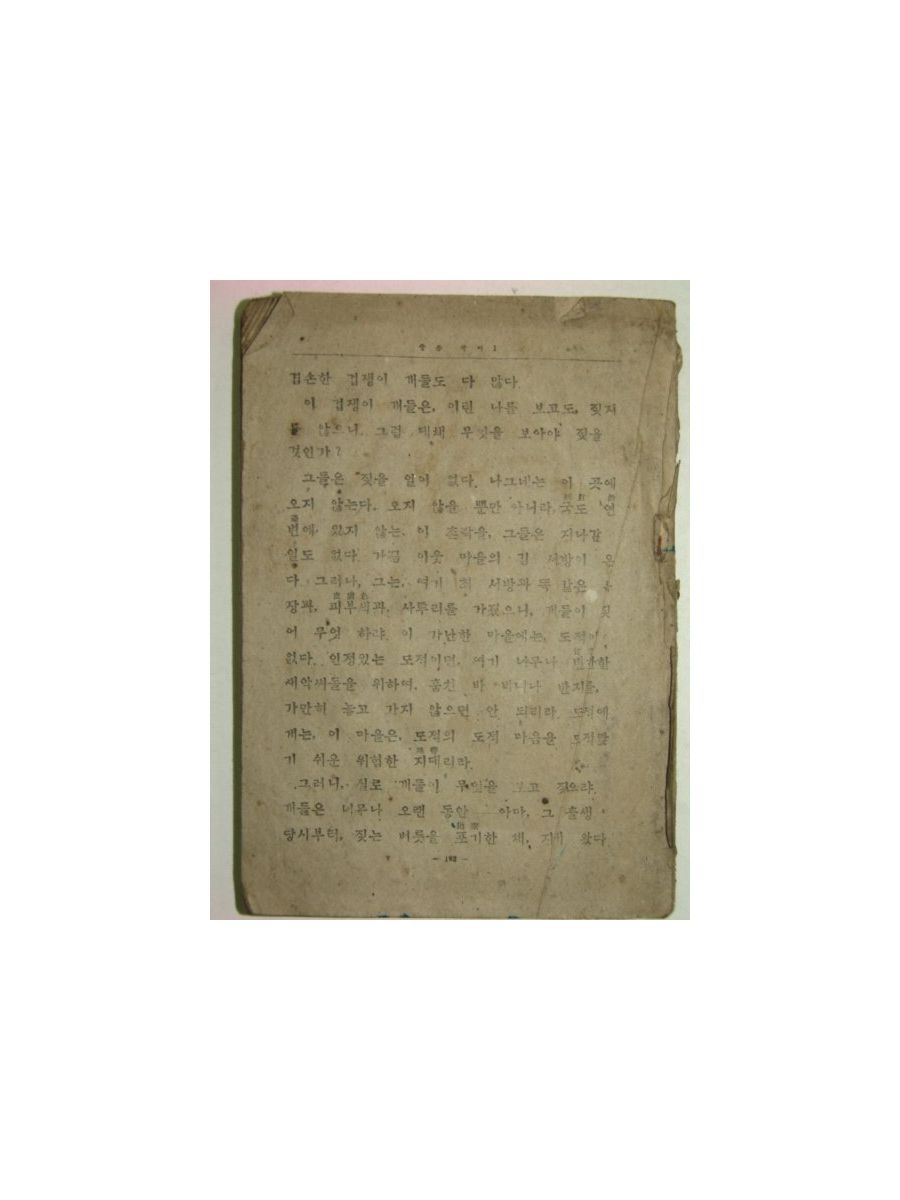 중 등 국 어 1
겁손한 겁쟁이 개들도 다 많다.
이 겁쟁이 개들은, 이런 나를 보고도, 짖지
를 않으니, 그럼 대체 무엇을 보아야 짖을
것인가?
그들은 짖을 일이 없다. 나그네는 이 곳에
오지 않는다. 오지 않을 뿐만 아니라, 국도 연
변에, 있지 않는, 이 촌락을, 그들은 지나갈
일도 없다. 가끔 이웃 마을의 김 서방이 온
다. 그러나, 그는, 여기 최 서방과 똑 같은
장과, 피부색과, 사투리를 가졌으니, 개들이 짖
어 무엇 하랴. 이 가난한 마을에는, 도적이
없다. 인정있는 도적이면, 여기 너무나
새악씨들을 위하여, 훔친 바 비녀나 반지를,
가만히 놓고 가지 않으면 안 되리라. 도적에
게는, 이 마을은, 도적의 도적 마음을 도적맞
기 쉬운 위험한 地帶 지대리라.
그러니, 실로 개들이 무엇을 보고 짖으랴.
개들은 너무나 오랜 동안 아마, 그 출생
당시부터, 짖는 버릇을 포기한 채, 지내 왔다.
— 182 —